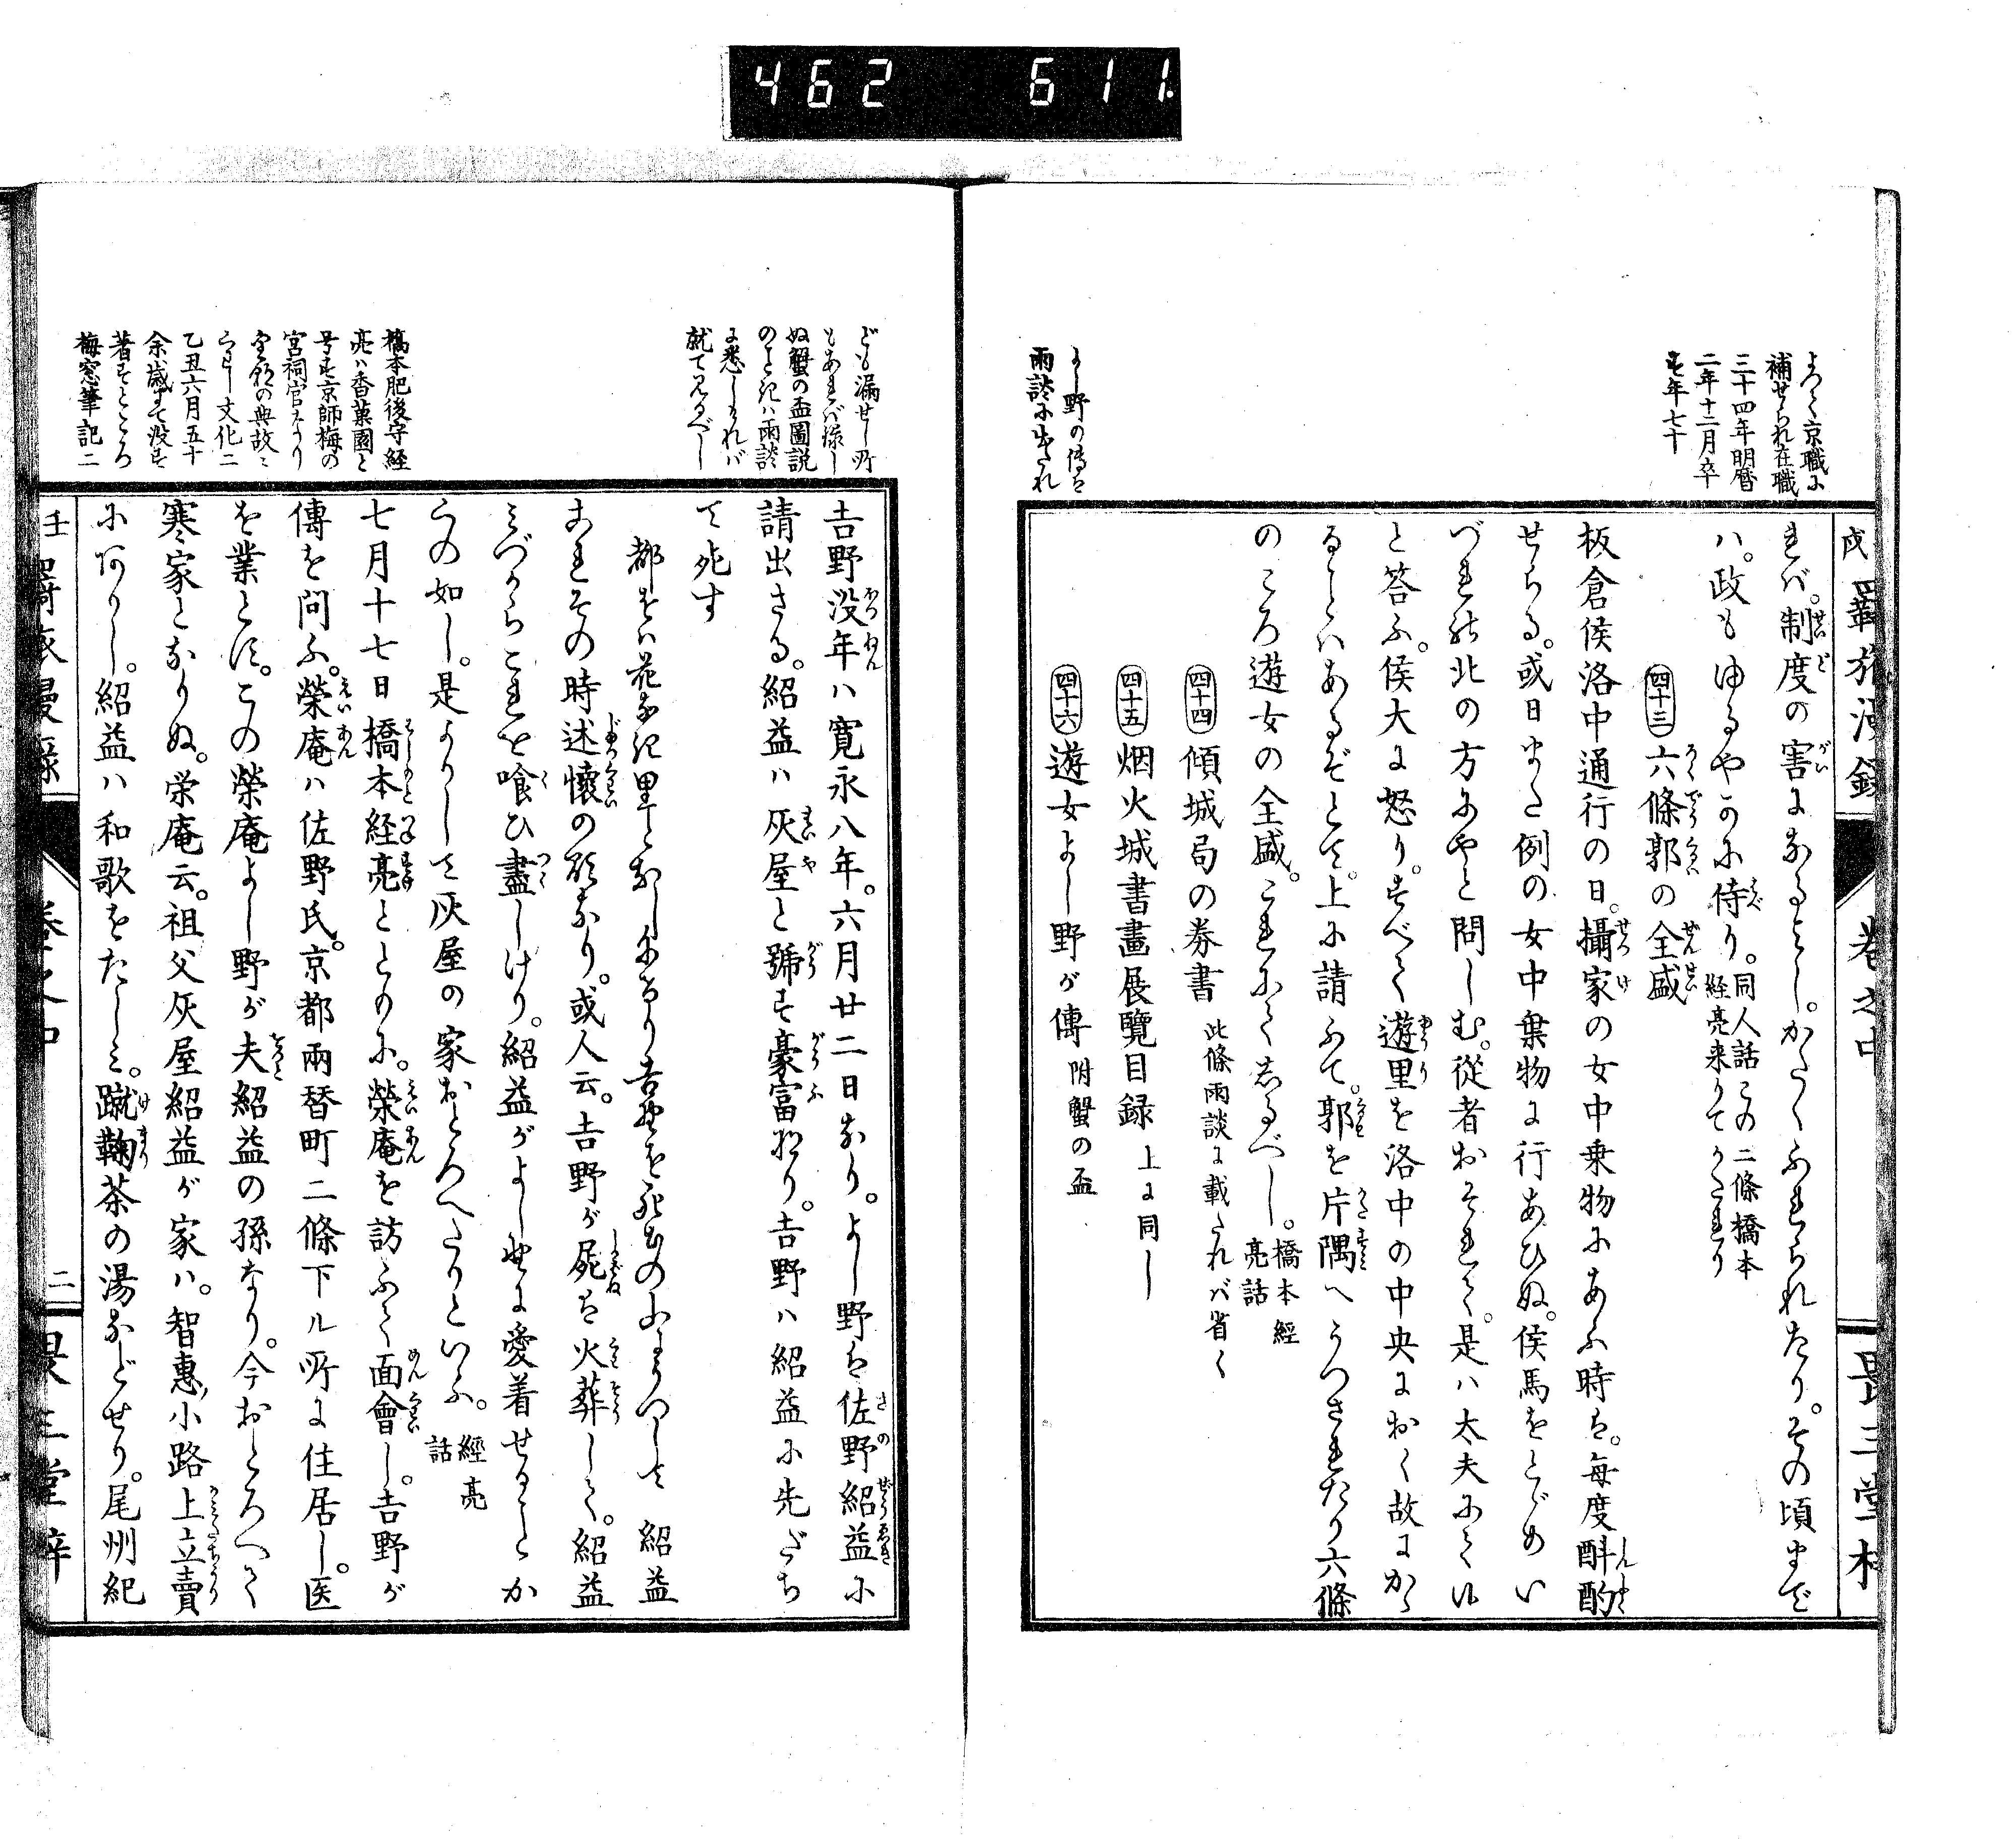 462 611
よつて京職に
補せられ在職
三十四年明暦
二年十二月卒
す年七十
よし野の傳は
雨談に出たれ
羇旅漫録
巻之中
畏三堂梓
れバ。制度の害になるよし。かたくふれられたり。その頃まで
ハ。政もゆるやかに侍り。同人話この二條橋本
経亮来りてかたれり
四十三 六條郭の全盛
板倉侯洛中通行の日。攝家の女中乗物にあふ時は。毎度斟酌
せらる。或日また例の女中乗物に行あひぬ。侯馬をとゞめい
づれの北の方にやと問しむ。従者おそれて。是ハ太夫にて候
と答ふ。侯大に怒り。すべて遊里を洛中の中央におく故にかゝ
ることハあるぞとて。上に請ふて。郭を片隅へうつされたり六條
のころ遊女の全盛。これにてしるべし。橋本經
亮話
四十四 傾城局の券書 此條雨談に載たれバ省く
四十五 烟火城書畫展覽目録 上に同し
四十六 遊女よし野が傳 附蟹の盃
ども漏せし所
もあれバ録し
ぬ蟹の盃圖説
のときハ雨談
に悉しけれバ
就て見るべし
橋本肥後守経
亮ハ香菓園と
号す京師梅の
宮祠官なり
乙丑六月五十
余歳にて没す
著すところ
梅窓筆記二
吉野没年ハ寛永八年。六月廿二日なり。よし野は佐野紹益に
請出さる。紹益ハ灰屋と號す豪富なり。吉野ハ紹益に先だち
て死す
都をハ花なき里となしにけり吉野を死出の山にうつして 紹益
あれその時述懐の歌なり。或人云。吉野が屍は火葬して。紹益
みづからこれを喰ひ盡しけり。紹益がよし野に愛着せることか
くの如し。是よりして灰屋の家おとろへたりといふ。經亮
話
七月十七日橋本経亮とともに。榮庵を訪ふて面會し。吉野が
傳を問ふ。榮庵ハ佐野氏。京都兩替町二條下ル所に住居し。医
を業とす。この榮庵よし野が夫紹益の孫なり。今おとろへて
寒家となりぬ。栄庵云。祖父灰屋紹益が家ハ。智惠小路上立賣
にありし。紹益ハ和歌をたしみ。蹴鞠茶の湯などせり。尾州紀
壬 羇旅漫録
巻之中
二
畏三堂梓